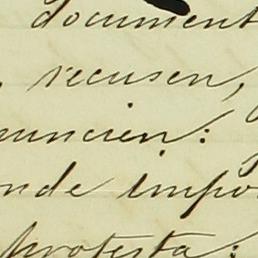 document
, recusen,
nuncien:
nde impo
protesta: